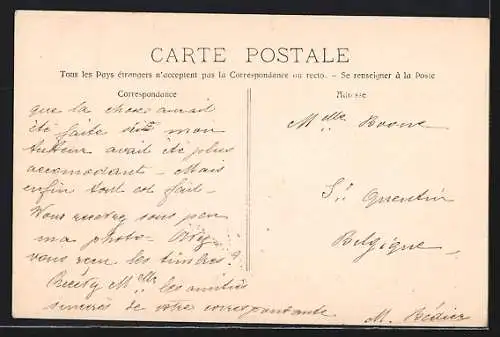 CARTE POSTALE
Tous les Pays étrangers n'acceptent pas la Correspondance au recto. - Se renseigner à la Poste
Correspondance
Adresse
que la chose aurait
été faite si mon
tuteur avait été plus
accomodant - Mais
enfin tout est fait -
Vous sous peu
ma photo - 
vous reçu les timbres ?
Recevez Melle les amitiés
sincères de votre correspondante
M.
Melle Boone
St Quentin
Belgique